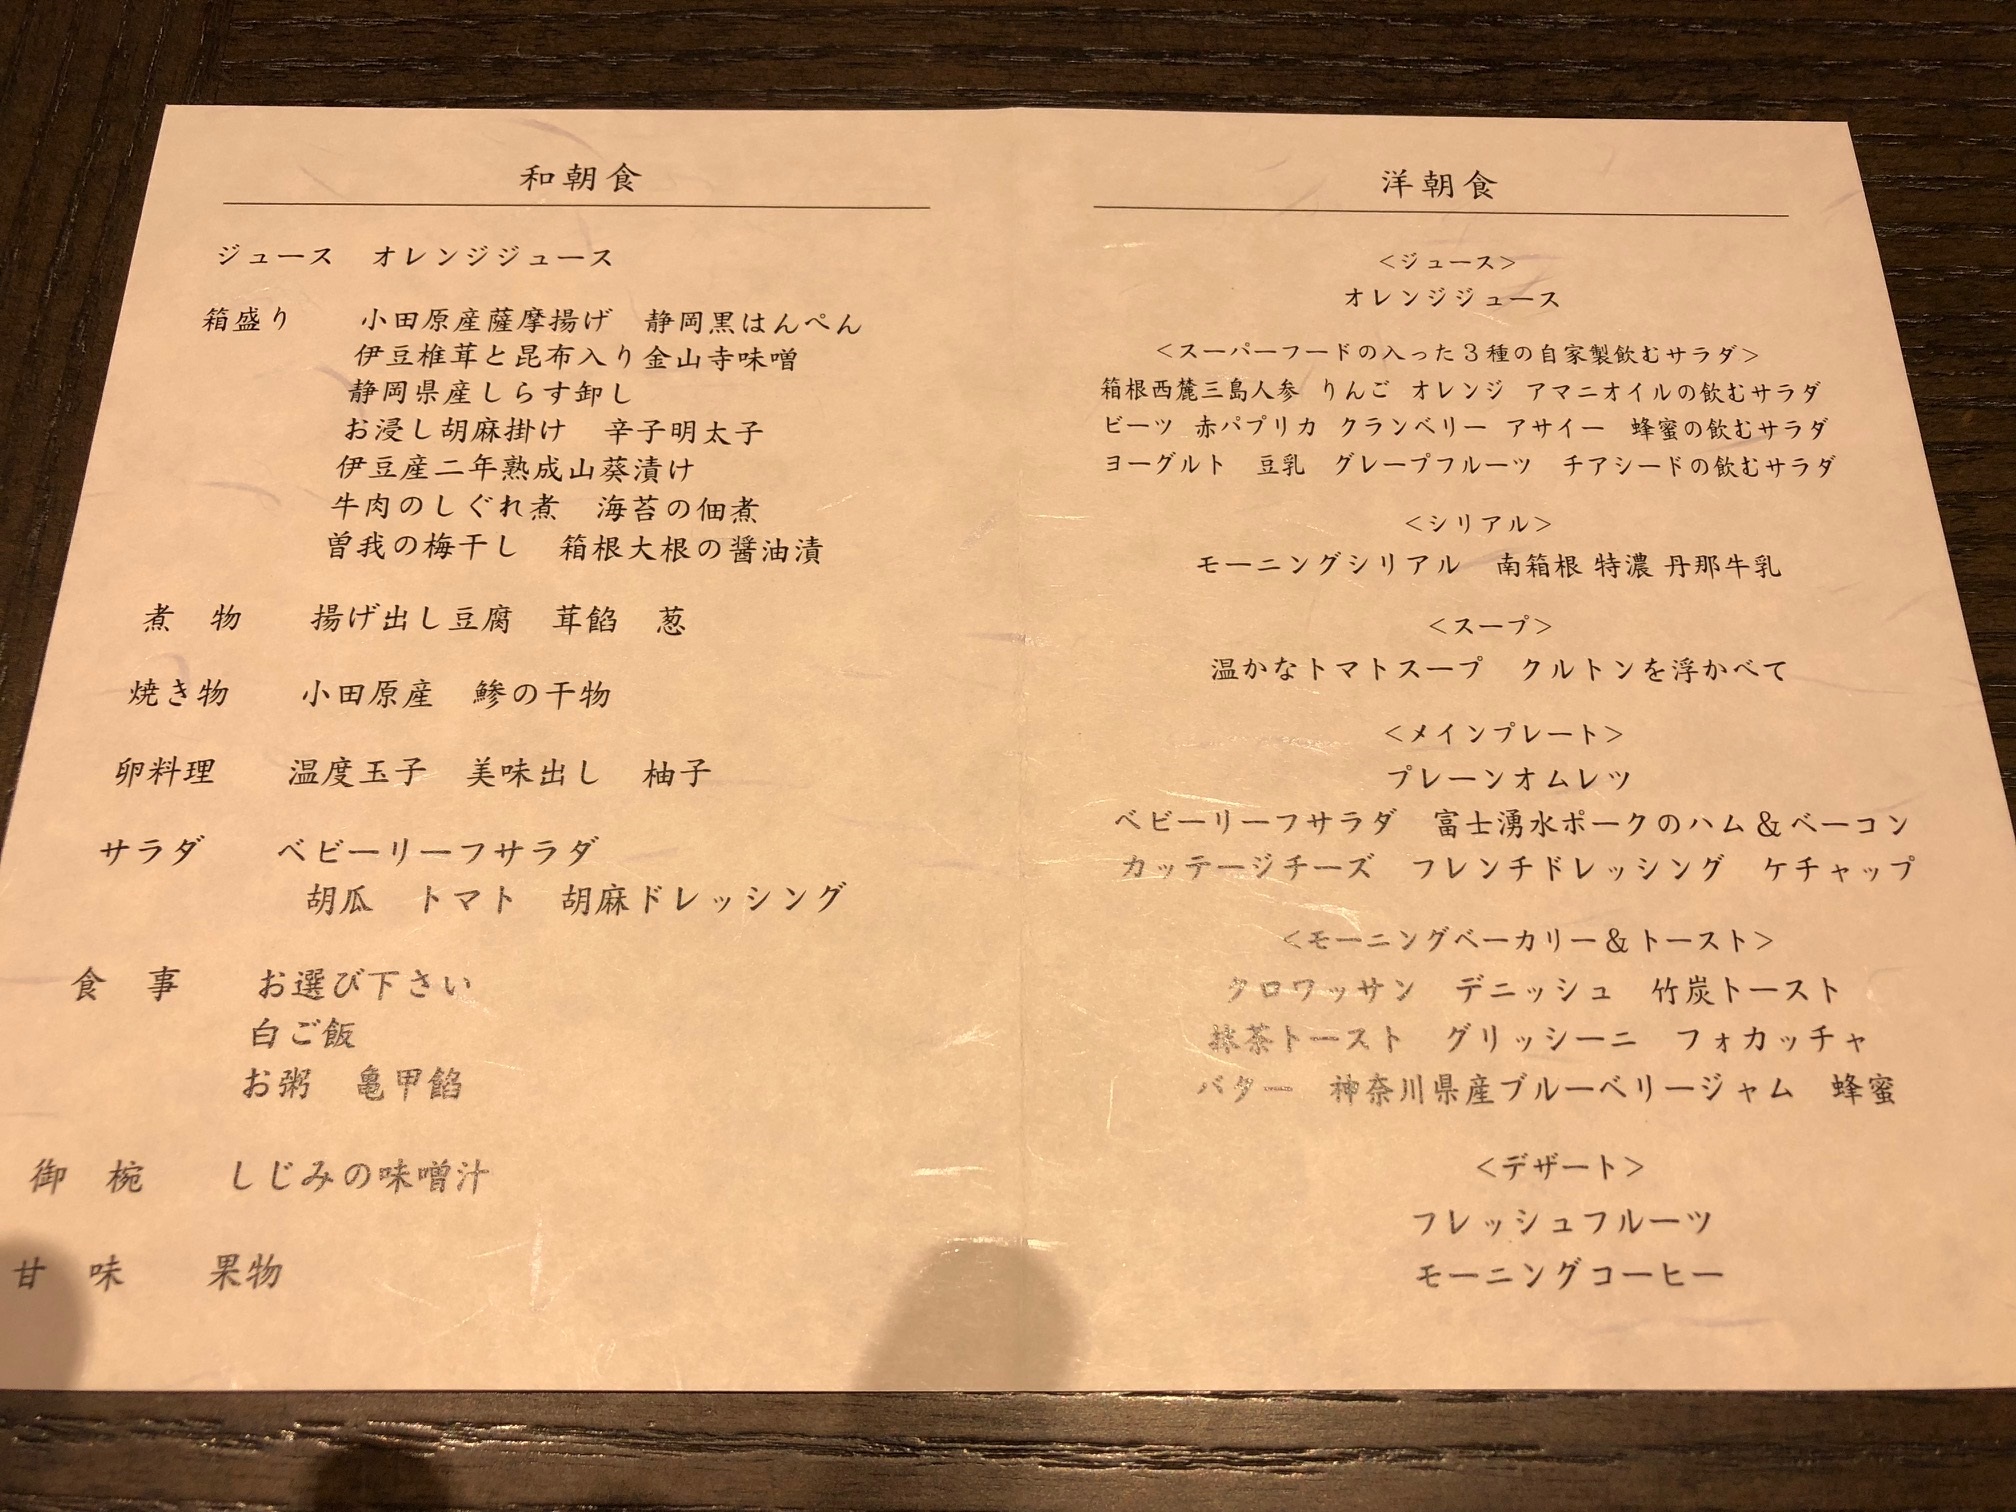 和朝食
ジュース　オレンジジュース
箱盛り　小田原産薩摩揚げ　静岡黒はんぺん
伊豆椎茸と昆布入り金山寺味噌
静岡県産しらす卸し
お浸し胡麻掛け　辛子明太子
伊豆産二年熟成山葵漬け
牛肉のしぐれ煮　海苔の佃煮
曽我の梅干し　箱根大根の醤油漬
煮　物　揚げ出し豆腐　茸餡　葱
焼き物　小田原産　鯵の干物
卵料理　温度玉子　美味出し　柚子
サラダ　ベビーリーフサラダ
胡瓜　トマト　胡麻ドレッシング
食　事　お選び下さい
白ご飯
お粥　亀甲餡
御　椀　しじみの味噌汁
甘　味　果物
洋朝食
＜ジュース＞
オレンジジュース
＜スーパーフードの入った３種の自家製飲むサラダ＞
箱根西麓三島人参　りんご　オレンジ　アマニオイルの飲むサラダ
ビーツ　赤パプリカ　クランベリー　アサイー　蜂蜜の飲むサラダ
ヨーグルト　豆乳　グレープフルーツ　チアシードの飲むサラダ
＜シリアル＞
モーニングシリアル　南箱根 特濃 丹那牛乳
＜スープ＞
温かなトマトスープ　クルトンを浮かべて
＜メインプレート＞
プレーンオムレツ
ベビーリーフサラダ　富士湧水ポークのハム＆ベーコン
カッテージチーズ　フレンチドレッシング　ケチャップ
＜モーニングベーカリー＆トースト＞
クロワッサン　デニッシュ　竹炭トースト
抹茶トースト　グリッシーニ　フォカッチャ
バター　神奈川県産ブルーベリージャム　蜂蜜
＜デザート＞
フレッシュフルーツ
モーニングコーヒー